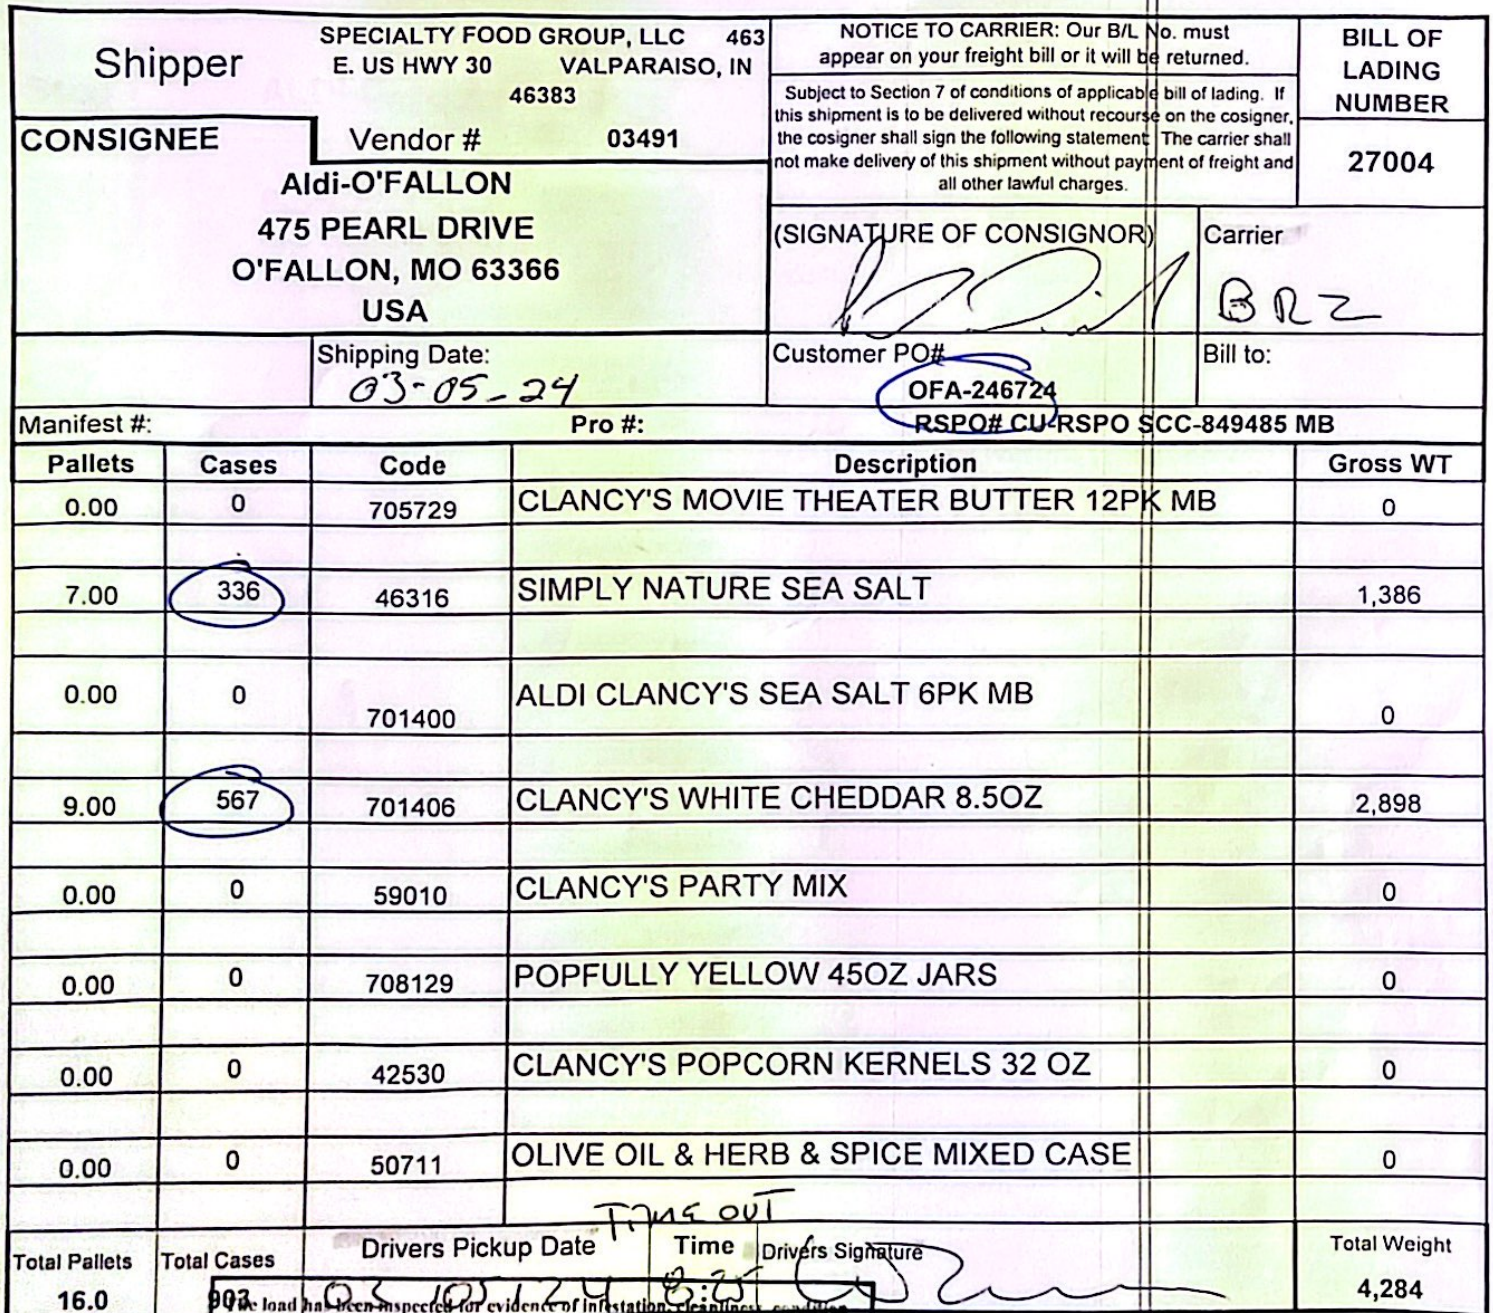 Shipper
SPECIALTY FOOD GROUP, LLC 463
E. US HWY 30 VALPARAISO, IN
46383
NOTICE TO CARRIER: Our B/L No. must
appear on your freight bill or it will be returned.
Subject to Section 7 of conditions of applicable bill of lading. If
this shipment is to be delivered without recourse on the cosigner,
the cosigner shall sign the following statement. The carrier shall
not make delivery of this shipment without payment of freight and
all other lawful charges.
BILL OF
LADING
NUMBER
27004
CONSIGNEE
Vendor # 03491
Aldi-O'FALLON
475 PEARL DRIVE
O'FALLON, MO 63366
USA
(SIGNATURE OF CONSIGNOR)
Carrier
BRZ
Shipping Date:
03-05-24
Customer PO#
OFA-246724
Bill to:
Manifest #: Pro #: RSPO# CU-RSPO SCC-849485 MB
Pallets Cases Code Description Gross WT
0.00 0 705729 CLANCY'S MOVIE THEATER BUTTER 12PK MB 0
7.00 336 46316 SIMPLY NATURE SEA SALT 1,386
0.00 0 701400 ALDI CLANCY'S SEA SALT 6PK MB 0
9.00 567 701406 CLANCY'S WHITE CHEDDAR 8.5OZ 2,898
0.00 0 59010 CLANCY'S PARTY MIX 0
0.00 0 708129 POPFULLY YELLOW 45OZ JARS 0
0.00 0 42530 CLANCY'S POPCORN KERNELS 32 OZ 0
0.00 0 50711 OLIVE OIL & HERB & SPICE MIXED CASE 0
TIME OUT
Total Pallets Total Cases Drivers Pickup Date Time Drivers Signature Total Weight
16.0 903 03/05/24 8:25 4,284
The load has been inspected for evidence of infestation, cleanliness, condition